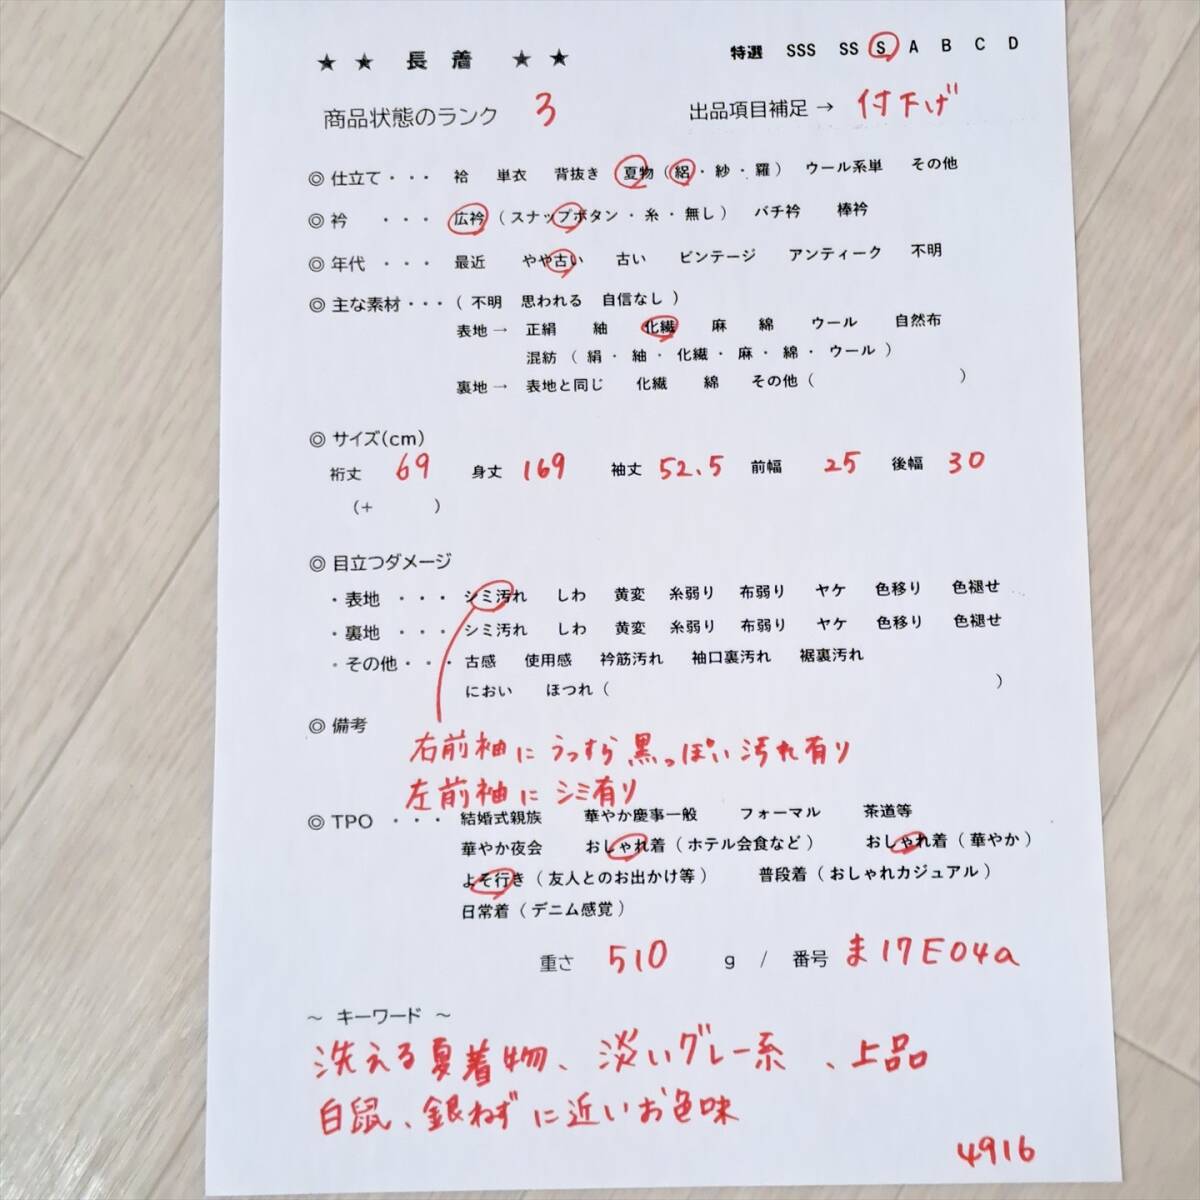 ★ ★ 長 着 ★ ★ 特選 SSS SS S A B C D
商品状態のランク 3 出品項目補足 → 付下げ
◎ 仕立て ・・・ 袷 単衣 背抜き 夏物 ( 絽 ・ 紗 ・ 羅 ) ウール系単 その他
◎ 衿 ・・・ 広衿 ( スナップボタン ・ 糸 ・ 無し ) バチ衿 棒衿
◎ 年代 ・・・ 最近 やや古い 古い ビンテージ アンティーク 不明
◎ 主な素材 ・・・ ( 不明 思われる 自信なし )
表地 → 正絹 紬 化繊 麻 綿 ウール 自然布
混紡 ( 絹 ・ 紬 ・ 化繊 ・ 麻 ・ 綿 ・ ウール )
裏地 → 表地と同じ 化繊 綿 その他 ( )
◎ サイズ(cm)
裄丈 69 身丈 169 袖丈 52.5 前幅 25 後幅 30
(+ )
◎ 目立つダメージ
・表地 ・・・ シミ汚れ しわ 黄変 糸弱り 布弱り ヤケ 色移り 色褪せ
・裏地 ・・・ シミ汚れ しわ 黄変 糸弱り 布弱り ヤケ 色移り 色褪せ
・その他 ・・・ 古感 使用感 衿筋汚れ 袖口裏汚れ 裾裏汚れ
におい ほつれ ( )
◎ 備考
右前袖にうっすら黒っぽい汚れ有り
左前袖にシミ有り
◎ TPO ・・・ 結婚式親族 華やか慶事一般 フォーマル 茶道等
華やか夜会 おしゃれ着 ( ホテル会食など ) おしゃれ着 ( 華やか )
よそ行き ( 友人とのお出かけ等 ) 普段着 ( おしゃれカジュアル )
日常着 ( デニム感覚 )
重さ 510 g / 番号 ま17E04a
~ キーワード ~
洗える夏着物、淡いグレー系、上品
白鼠、銀ねずに近いお色味
4916